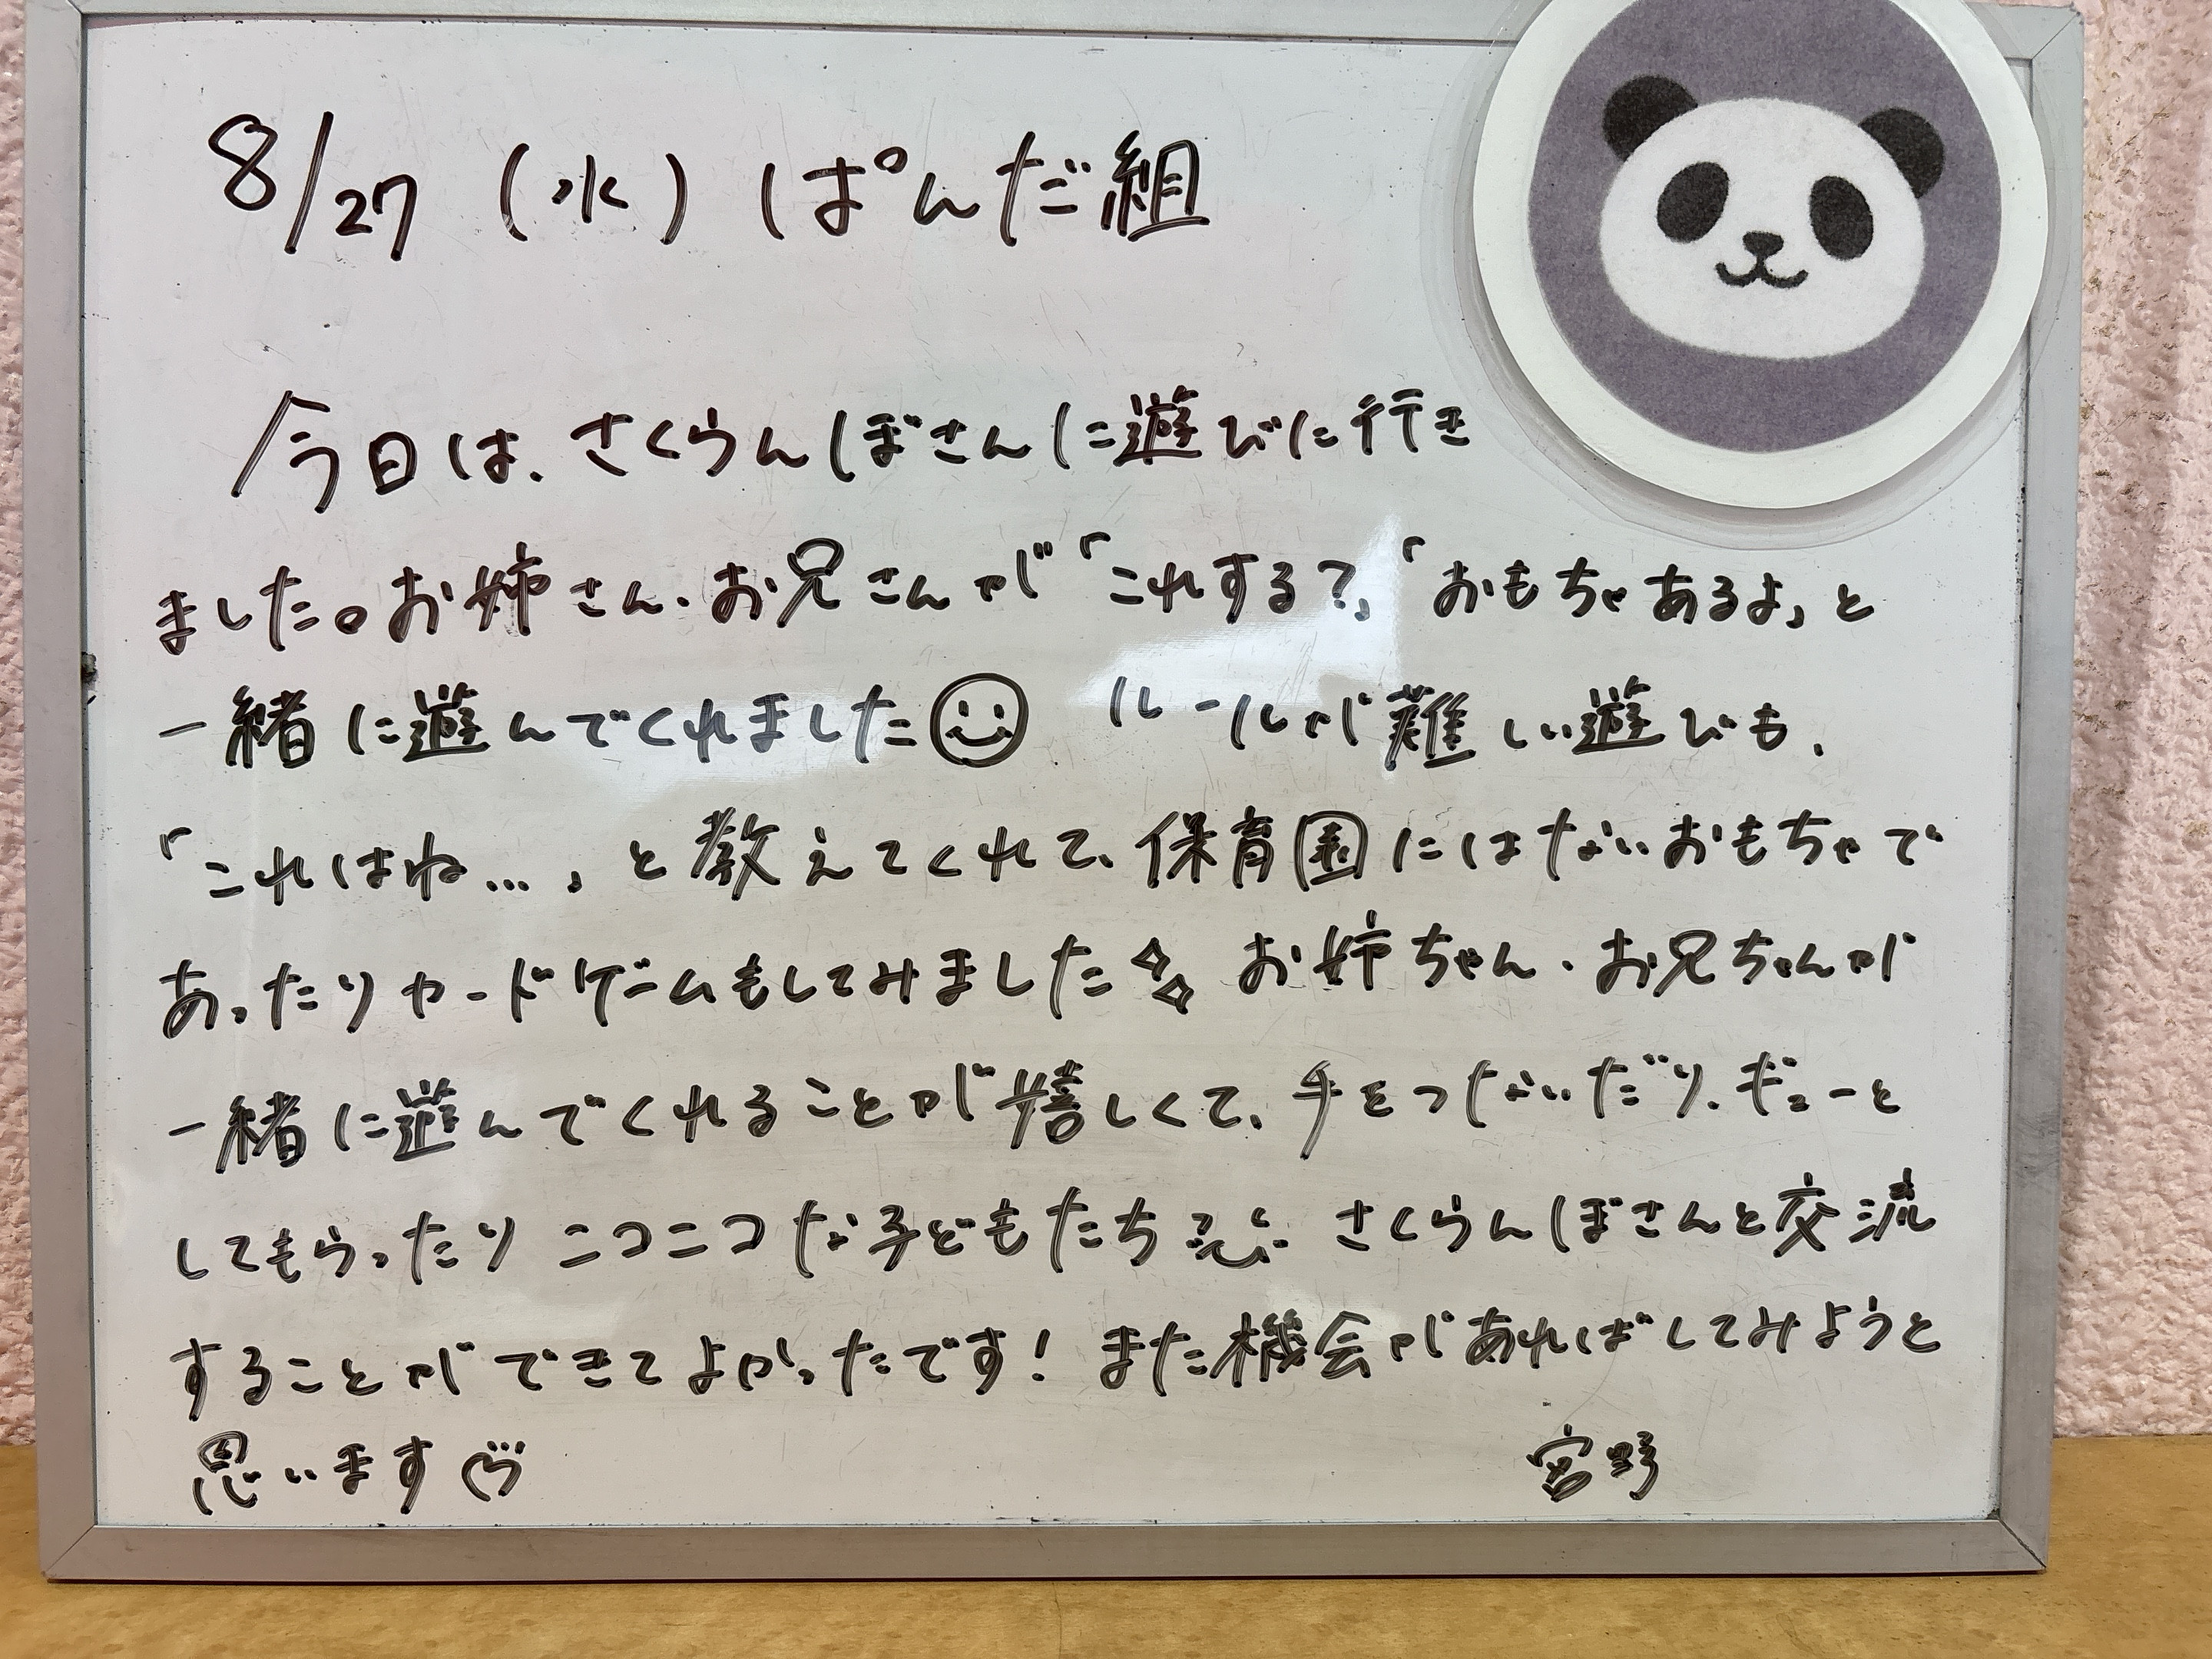 8/27（水）ぱんだ組
今日は、さくらんぼさんに遊びに行き
ました。お姉さん・お兄さんが「これする？」「おもちゃあるよ」と
一緒に遊んでくれました☺ ルールが難しい遊びも、
「これはね…」と教えてくれて、保育園にはないおもちゃで
あったりカードゲームもしてみました✧ お姉ちゃん・お兄ちゃんが
一緒に遊んでくれることが嬉しくて、手をつないだり、ギューと
してもらったりニコニコな子どもたち さくらんぼさんと交流
することができてよかったです！また機会があればしてみようと
思います♡
宮野